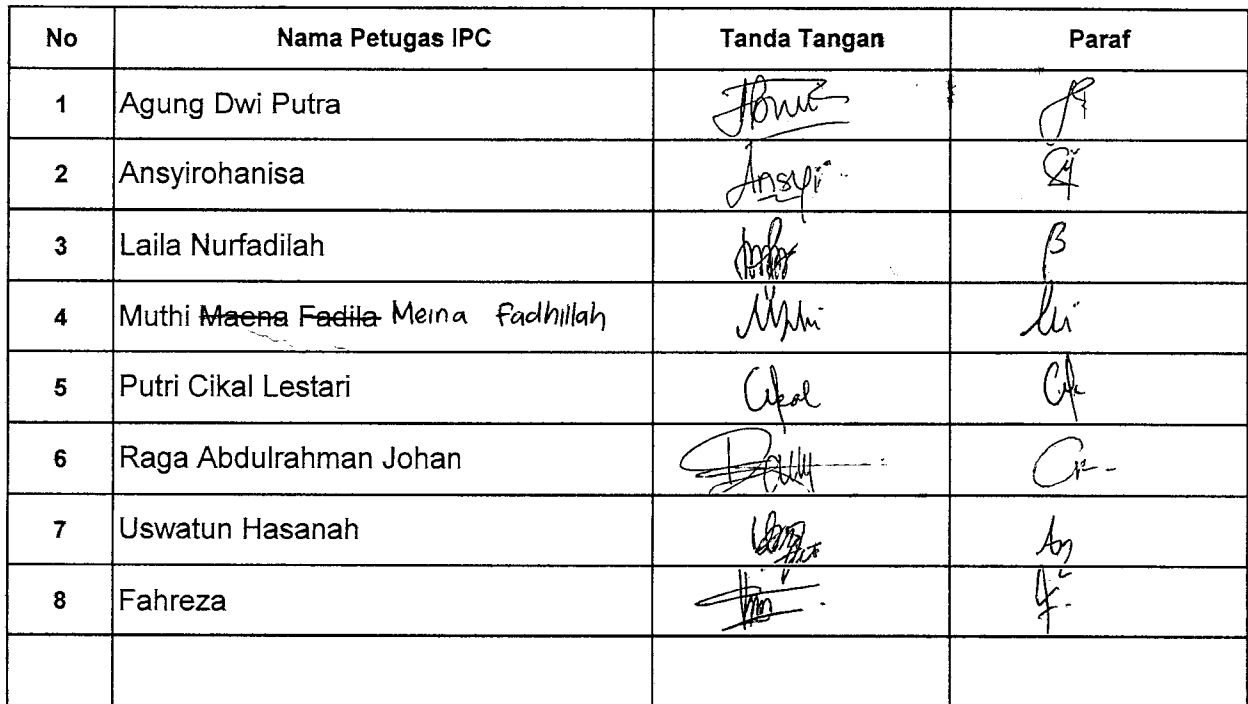 No Nama Petugas IPC Tanda Tangan Paraf
1 Agung Dwi Putra
2 Ansyirohanisa Ansyi
3 Laila Nurfadilah
4 Muthi Maena Fadila Meina Fadhillah
5 Putri Cikal Lestari Cikal
6 Raga Abdulrahman Johan
7 Uswatun Hasanah
8 Fahreza